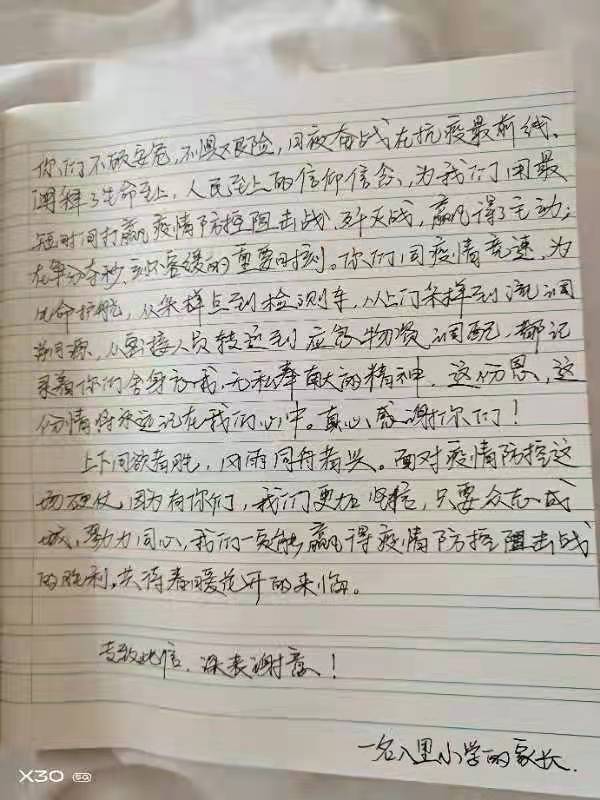 你们不顾安危,不惧艰险,日夜奋战在抗疫最前线、
阐释了生命至上,人民至上的信仰信念,为我们用最
短时间打赢疫情防控阻击战、歼灭战,赢得了主动;
在争分夺秒、刻不容缓的重要时刻。你们同疫情竞速,为
生命护航,从采样点到检测车,从上门采样到流调
溯源,从密接人员转运到应急物资调配,都记
录着你们舍身忘我,无私奉献的精神,这份恩,这
份情将永远记在我们心中。真心感谢你们!
上下同欲者胜,风雨同舟者兴。面对疫情防控这
场硬仗,因为有你们,我们更加坚信,只要众志成
城,勠力同心,我们一定能赢得疫情防控阻击战
的胜利,共待春暖花开的来临。
专致此信、深表谢意!
一名八里小学的家长.
X30 5G